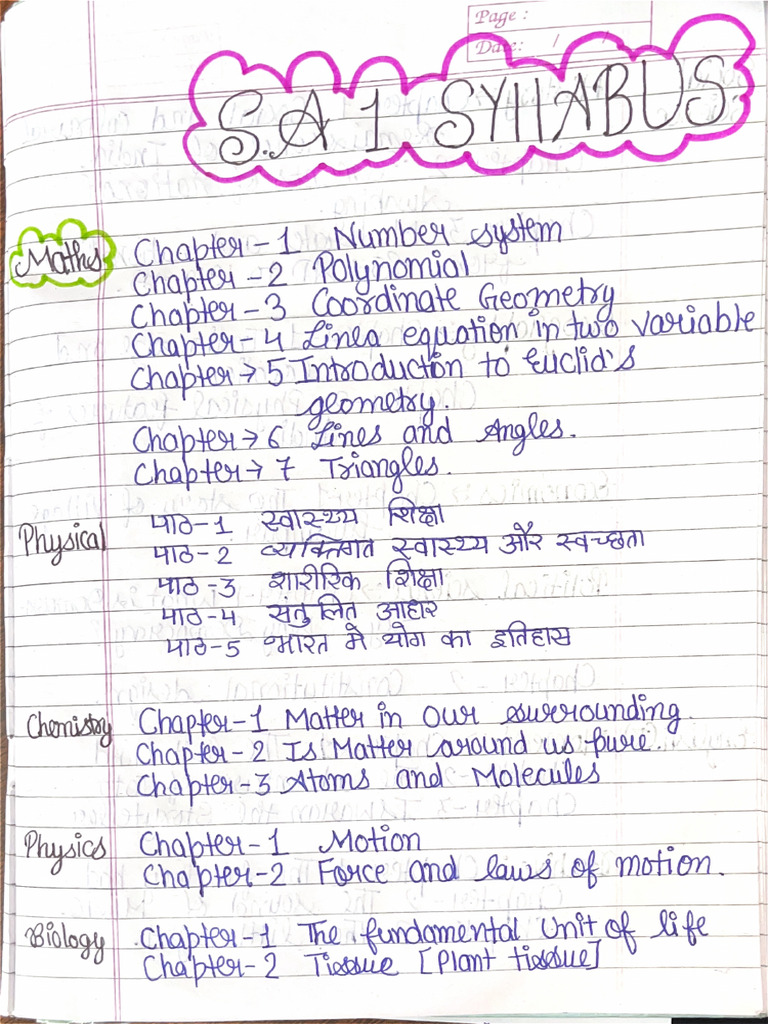 Page :
Date: / /
S.A 1 SYllABUS.
Maths
Chapter - 1 Number system
Chapter - 2 Polynomial
Chapter - 3 Coordinate Geometry
Chapter - 4 Linea equation in two variable
Chapter → 5 Introduction to Euclid's
geometry.
Chapter → 6 Lines and Angles.
Chapter → 7 Triangles.
Physical
पाठ-1 स्वास्थ्य शिक्षा
पाठ-2 व्यक्तिगत स्वास्थ्य और स्वच्छता
पाठ-3 शारीरिक शिक्षा
पाठ-4 संतुलित आहार
पाठ-5 भारत मे योग का इतिहास
Chemistry
Chapter-1 Matter in Our surrounding.
Chapter-2 Is Matter around us pure.
Chapter-3 Atoms and Molecules
Physics
Chapter-1 Motion
Chapter-2 Force and laws of motion.
Biology
Chapter-1 The fundamental Unit of life
Chapter-2 Tissue [Plant tissue]